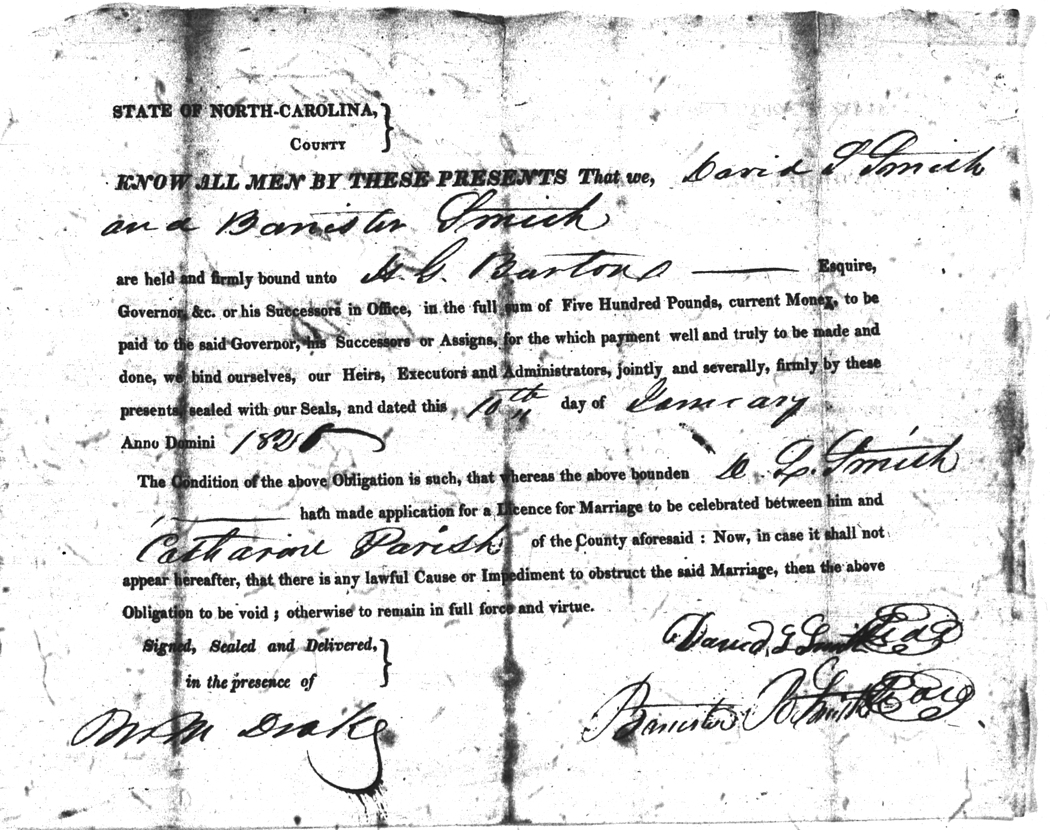 STATE OF NORTH-CAROLINA, }
COUNTY
KNOW ALL MEN BY THESE PRESENTS That we, David L Smith
and Banister Smith
are held and firmly bound unto H. G. Burton Esquire,
Governor, &c. or his Successors in Office, in the full sum of Five Hundred Pounds, current Money, to be
paid to the said Governor, his Successors or Assigns, for the which payment well and truly to be made and
done, we bind ourselves, our Heirs, Executors and Administrators, jointly and severally, firmly by these
presents, sealed with our Seals, and dated this 10th day of January
Anno Domini
The Condition of the above Obligation is such, that whereas the above bounden D. L. Smith
hath made application for a Licence for Marriage to be celebrated between him and
Catharine Parish of the County aforesaid : Now, in case it shall not
appear hereafter, that there is any lawful Cause or Impediment to obstruct the said Marriage, then the above
Obligation to be void ; otherwise to remain in full force and virtue.
Signed, Sealed and Delivered, }
in the presence of
David L Smith Seal
Banister B Smith Seal
Wm M Drake